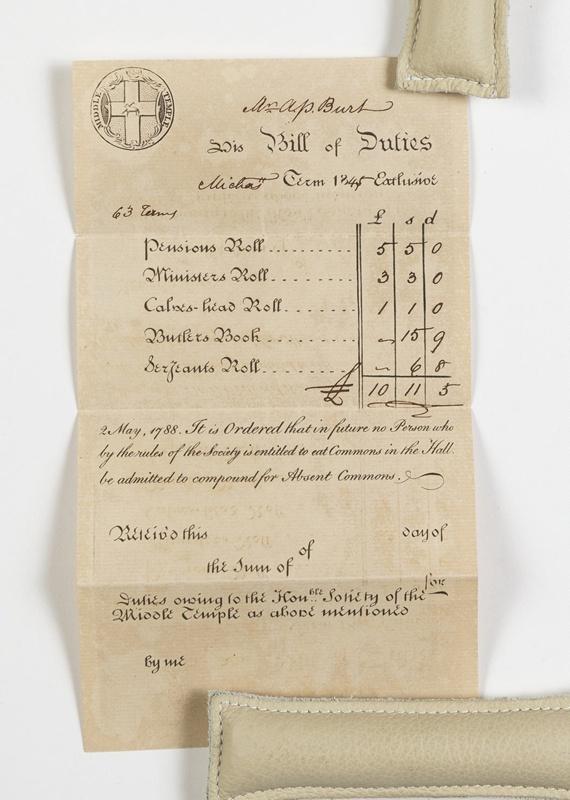 MIDDLE TEMPLE
Mr A. P. Burt
His Bill of Duties
Michas Term 1845 Exclusive
63 Terms
£ s d
Pensions Roll 5 5 0
Ministers Roll 3 3 0
Calves-head Roll 1 1 0
Butlers Book ~ 15 9
Serjeants Roll ~ 6 8
£ 10 11 5
2 May, 1788. It is Ordered that in future no Person who
by the rules of the Society is entitled to eat Commons in the Hall.
be admitted to compound for Absent Commons.
Receiv'd this day of
of
the Sum of
for
Duties owing to the Honble Society of the
Middle Temple as above mentioned
by me